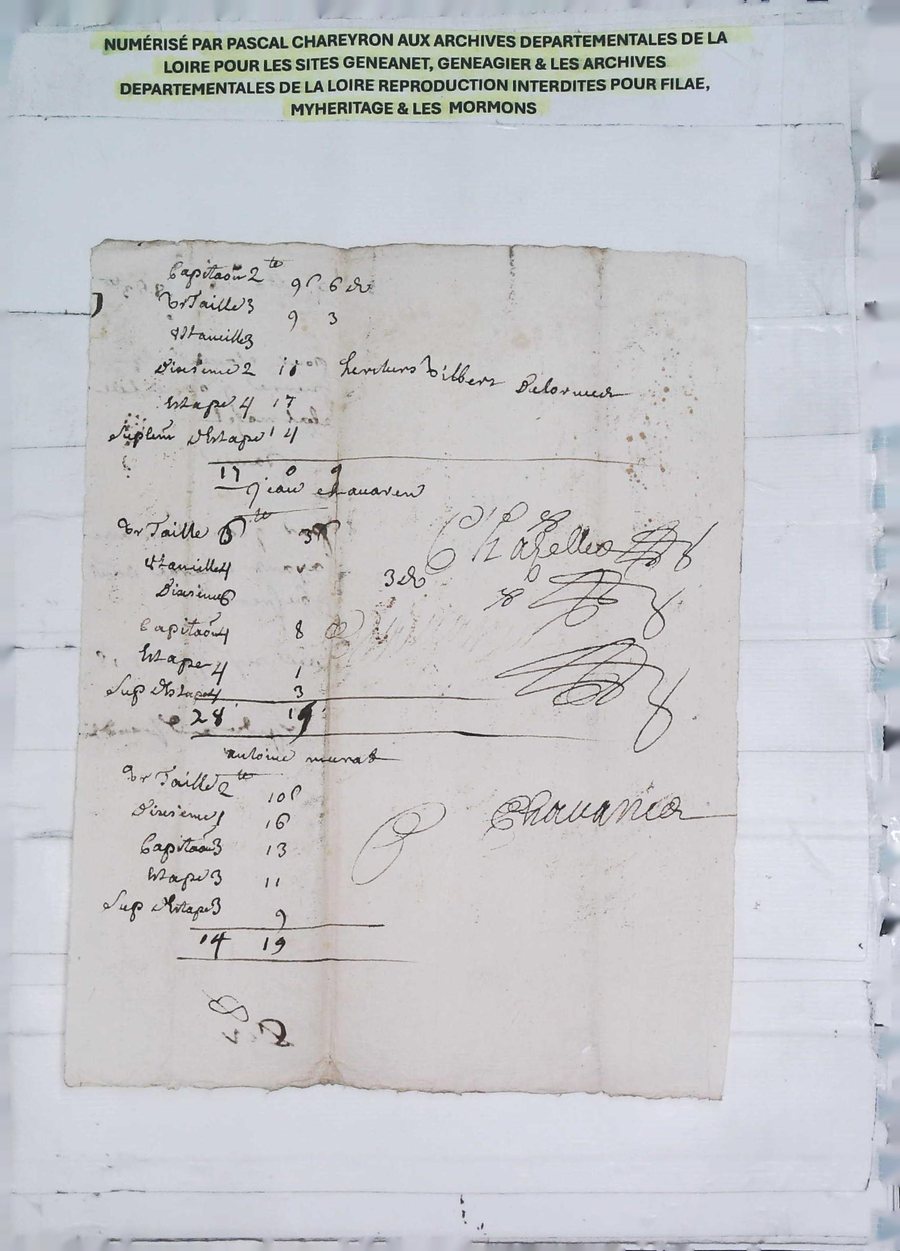 NUMÉRISÉ PAR PASCAL CHAREYRON AUX ARCHIVES DEPARTEMENTALES DE LA
LOIRE POUR LES SITES GENEANET, GENEAGIER & LES ARCHIVES
DEPARTEMENTALES DE LA LOIRE REPRODUCTION INTERDITES POUR FILAE,
MYHERITAGE & LES MORMONS
Capitaõn 2tt 9s 6 d
Taille 3 9 3
Dixieme 2 11 heritiers Gilbert Delorme
Estape 4 17
d'Estape 1 4
17 0 9
jean chavaren
Taille 6tt
4
Dixieme 6 3 d
Capitaõn 4 8
Estape 4 1
Sup d'Estape 4 3
28 19
antoine murat
Taille 2tt 10s
Dixieme 1 16
Capitaõn 3 13
Estape 3 11
Sup d'Estape 3 9
14 19
Chazelles
Chavanier